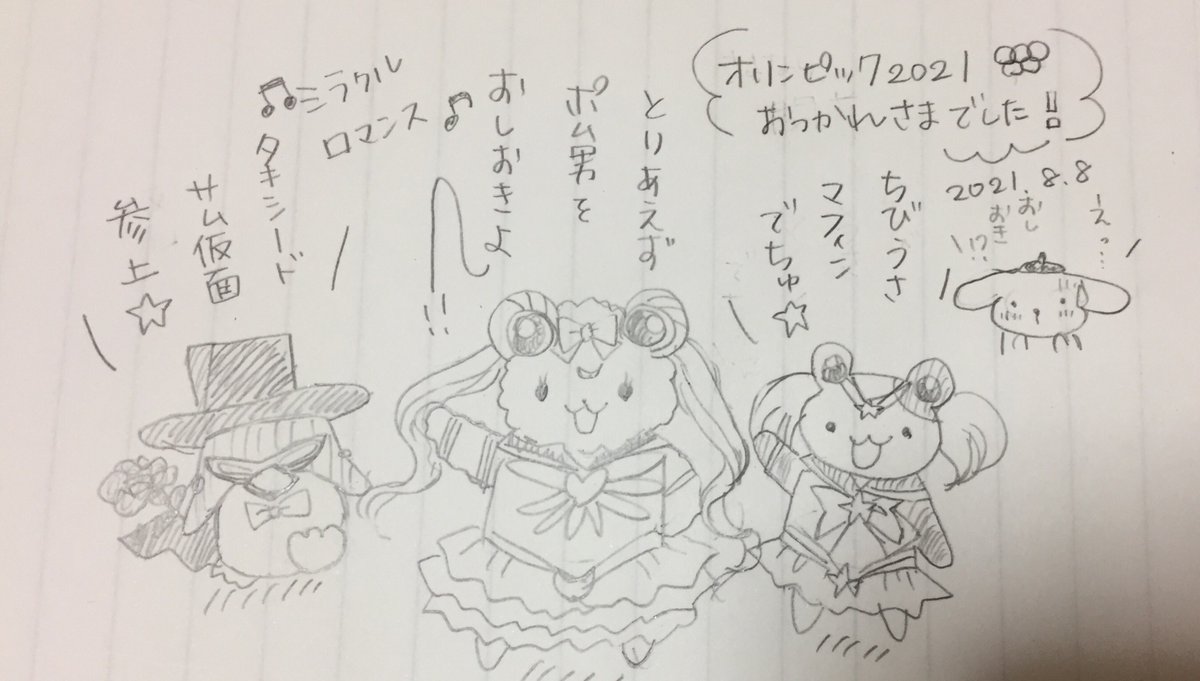 オリンピック2021
おつかれさまでした!!
2021.8.8
えっ…
おし
おき
!?
ちびうさ
マフィン
でちゅ☆
とりあえず
ポム男を
おしおきよ
!!
♫ミラクル
ロマンス♫
タキシード
サム仮面
参上☆